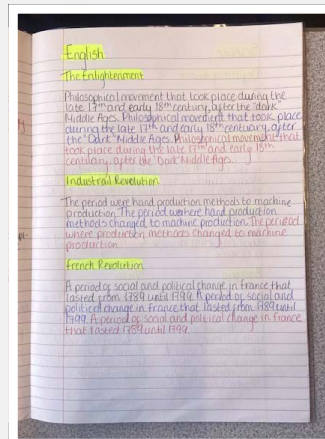 English
The Enlightenment
Philosophical movement that took place during the
late 17th and early 18th century, after the "dark"
Middle Ages. Philosophical movement that took place
during the late 17th and early 18th centuary, after
the "Dark" Middle Ages. Philosophical movement that
took place during the late 17th and early 18th
centuary, after the "Dark" Middle Ages.
Industrail Revolution
The period were hand production methods to machine
production. The period where hand production
methods changed to machine production. The perieod
where production methods changed to machine
production.
French Revolution
A period of social and political change in france that
lasted from 1789 until 1799. A period of social and
political change in france that lasted from 1789 until
1799. A period of social and political change in france
that lasted 1789 until 1799